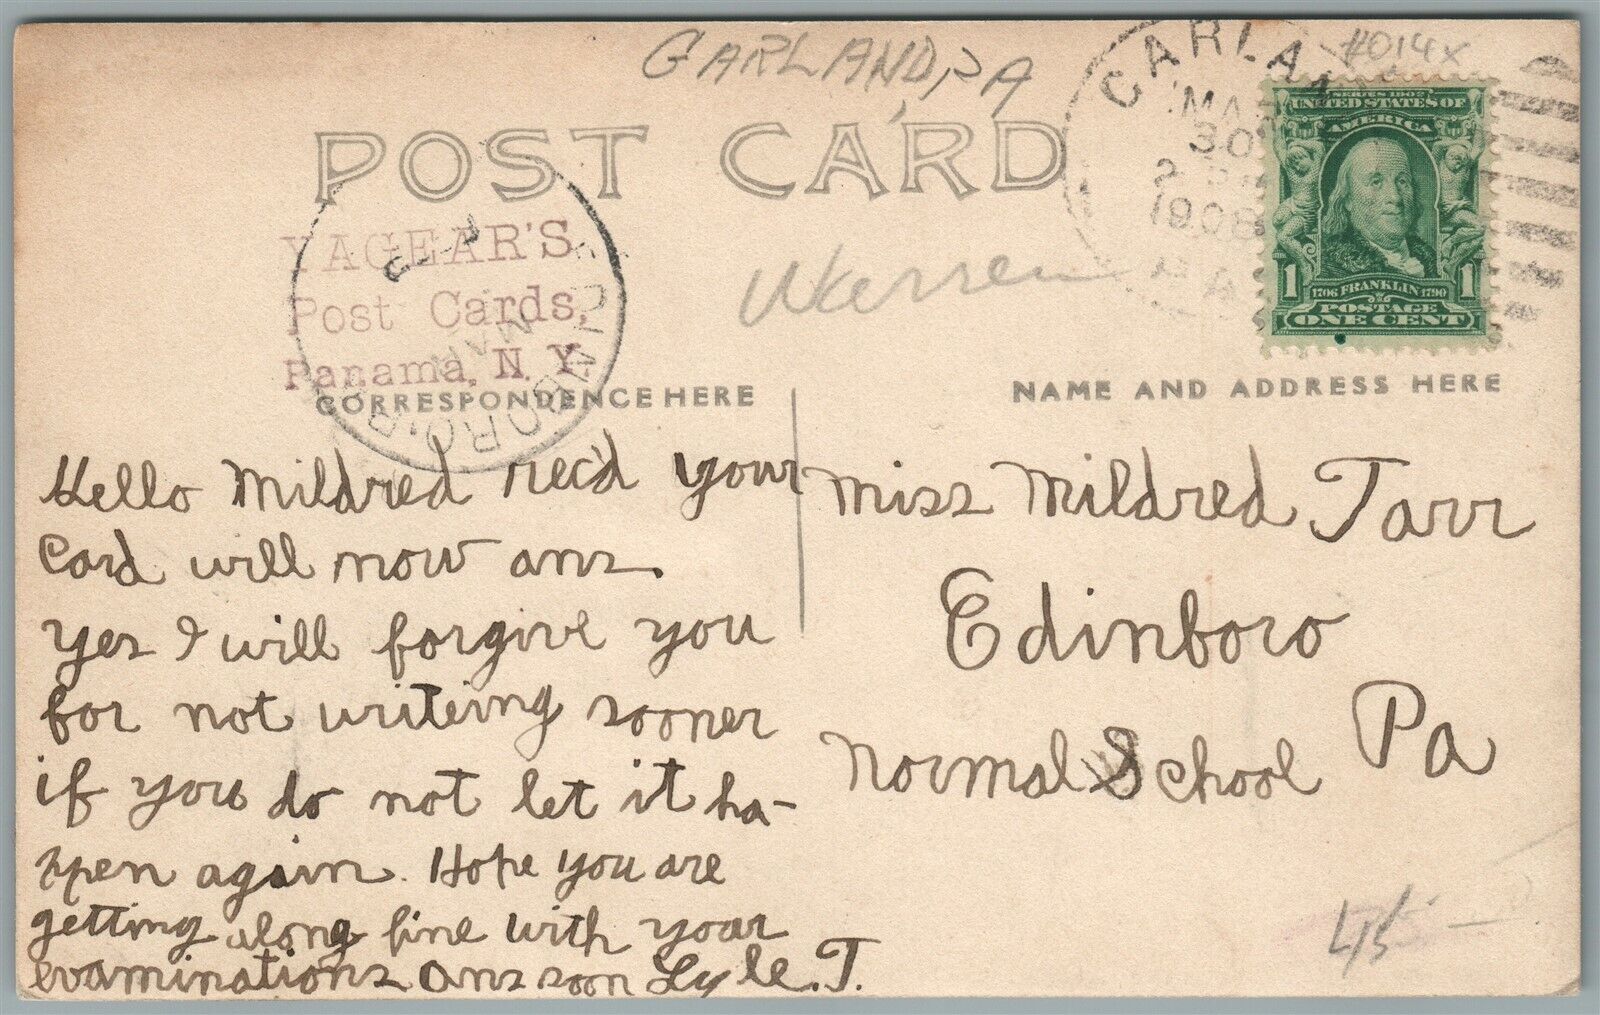 GARLAND, PA
#014x
POST CARD
GARLAN
MA
30
2
1908
A
SERIES 1902
UNITED STATES OF
AMERICA
1 1
1706 FRANKLIN 1790
POSTAGE
ONE CENT
YAGEAR'S
Post Cards,
Panama, N. Y.
MAR
Warren
CORRESPONDENCE HERE
NAME AND ADDRESS HERE
Hello Mildred rec'd your
Card will now ans.
yes I will forgive you
for not writeing sooner
if you do not let it ha-
ppen again. Hope you are
getting along fine with your
examinations Ans soon Lyle. T.
Miss Mildred Tarr
Edinboro
Normal School Pa
45-